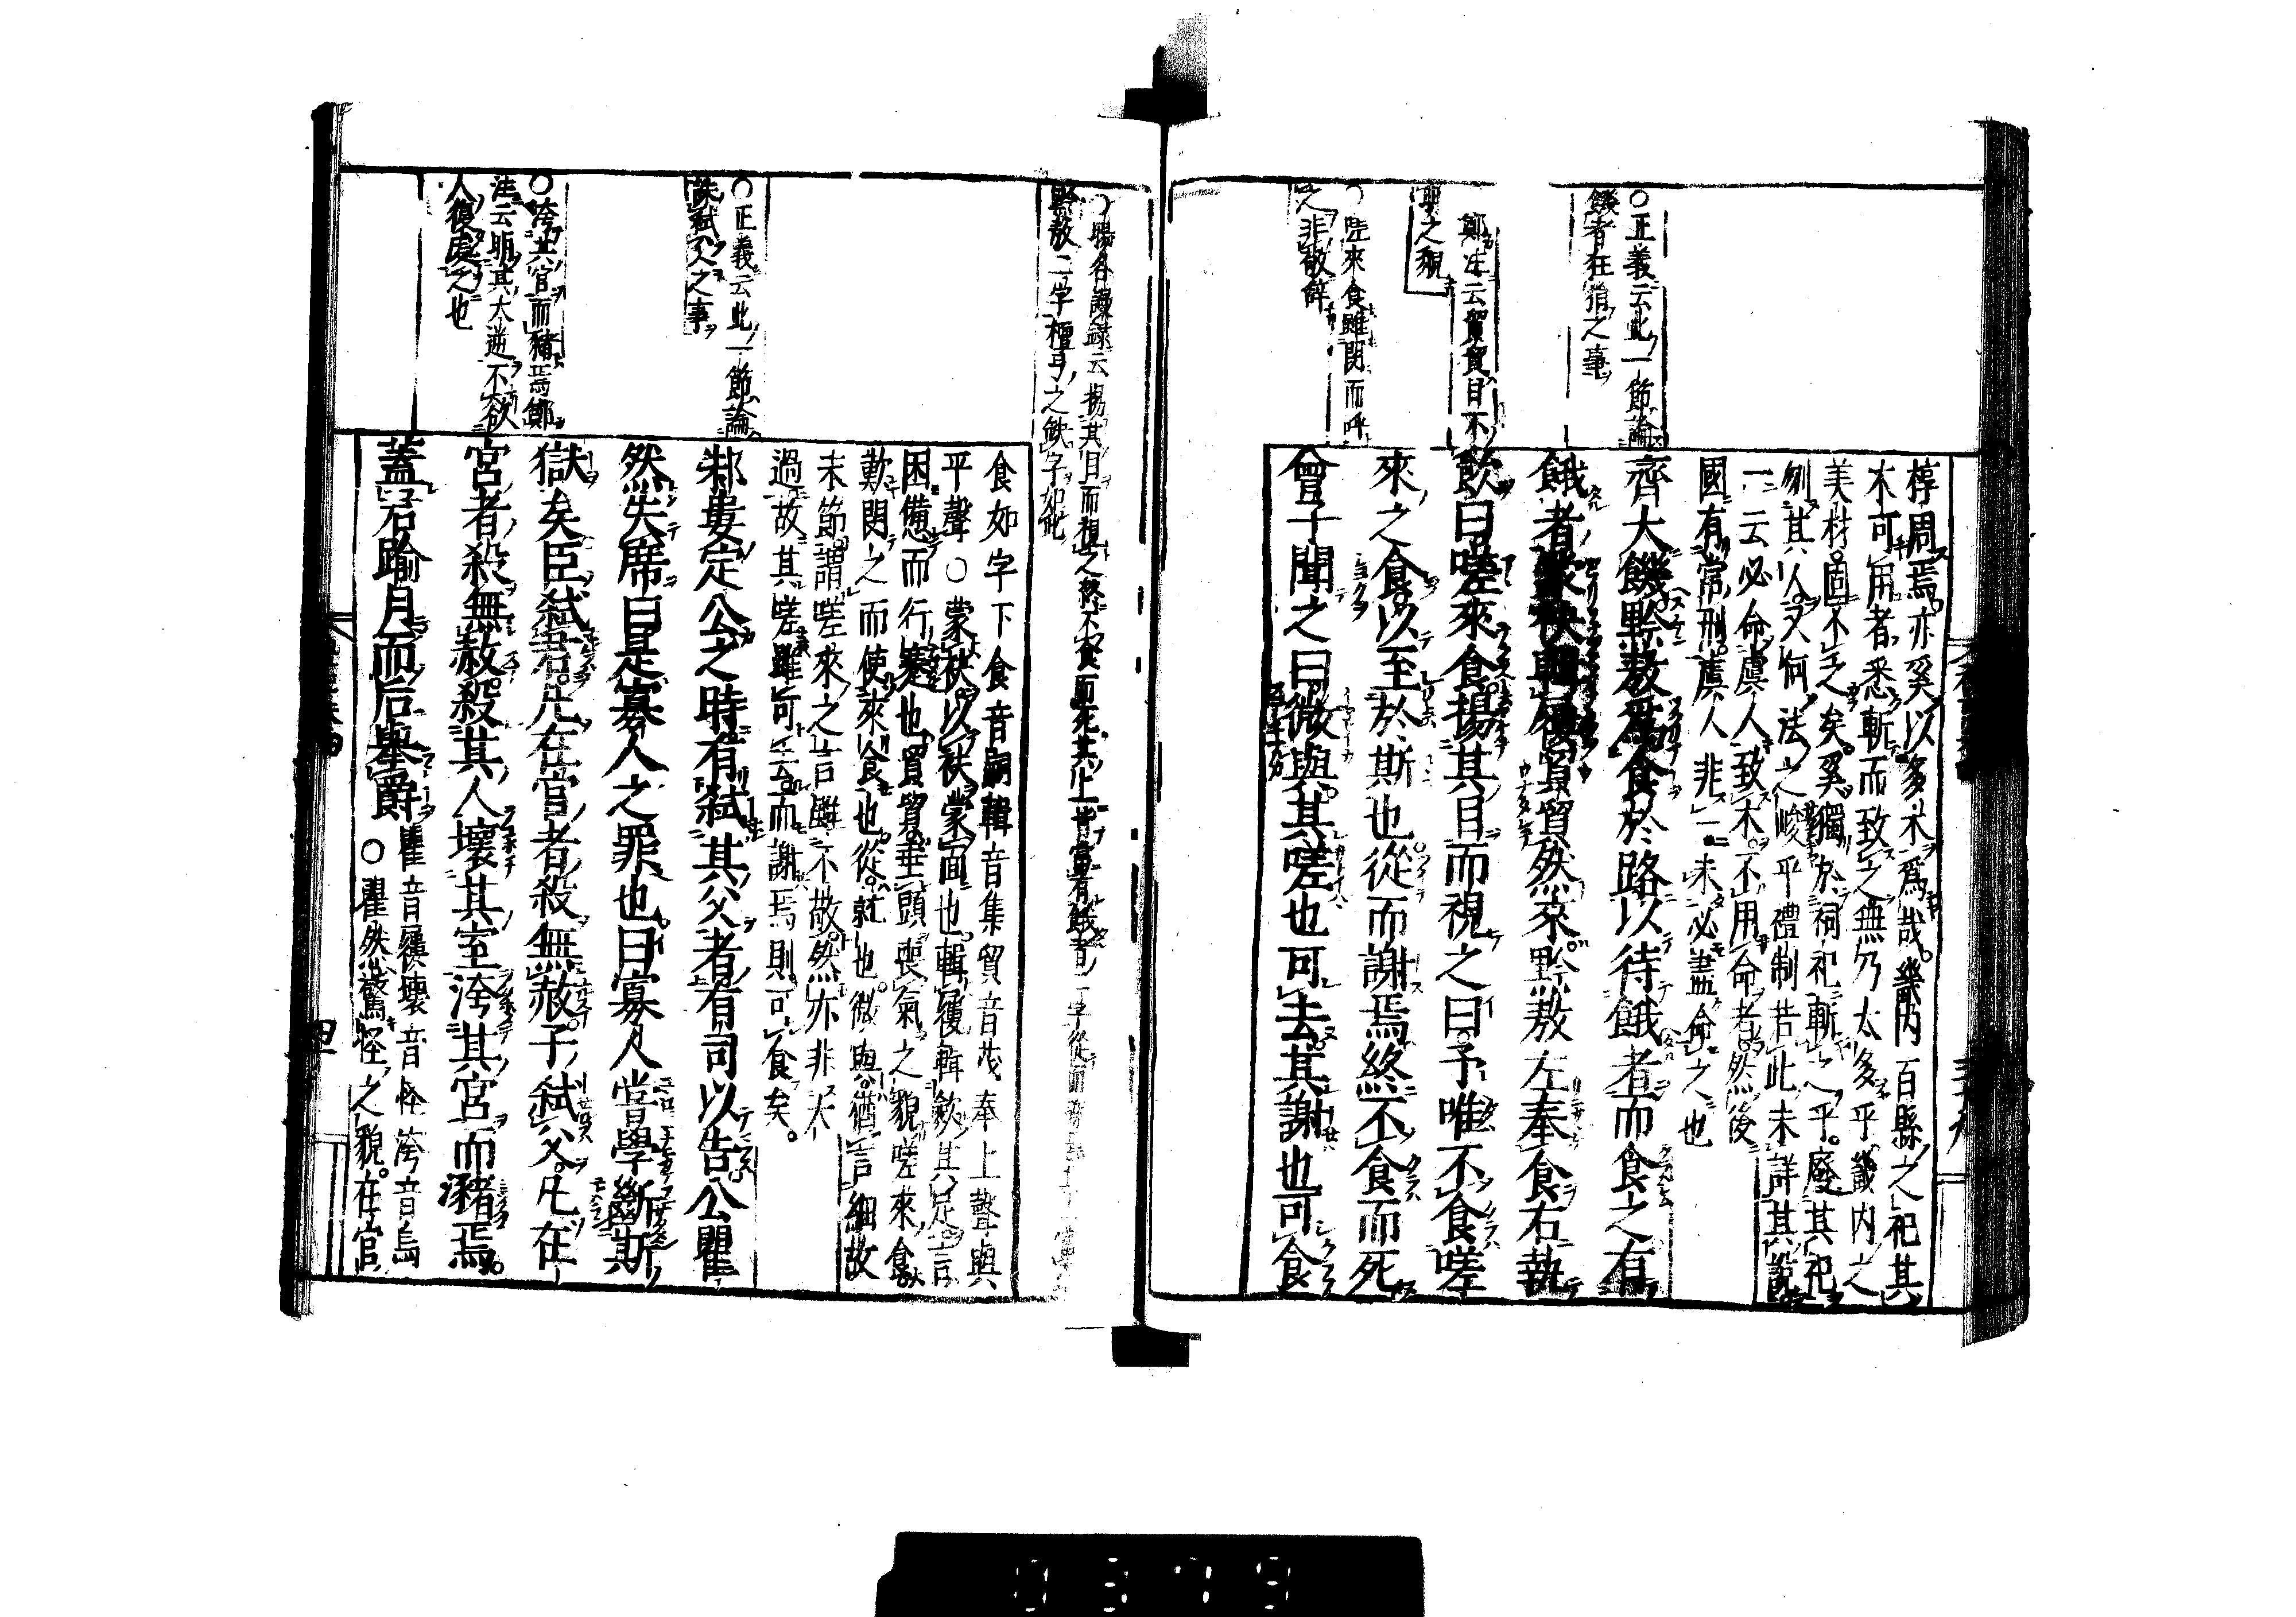 ○正義云此一節論
餓者在狷之事
鄭注云貿貿目不
明之貌
○嗟來食雖閔而呼
之非敬辭
椁周焉亦奚以多木爲哉畿內百縣之祀其
木可用者悉斬而致之無乃太多乎畿内之
美材固不乏矣奚獨於祠祀斬之乎廢其祀
刎其人又何法之峻乎禮制若此未詳其說
一云必命虞人致木不用命者然後
國有常刑虞人非一未必盡命之也
齊大饑黔敖爲食於路以待餓者而食之有
餓者蒙袂輯屨貿貿然來黔敖左奉食右執
飲曰嗟來食揚其目而視之曰予唯不食嗟
來之食以至於斯也從而謝焉終不食而死
曾子聞之曰微與其嗟也可去其謝也可食
云揚其目而視之終不食而死其上皆當有餓者二字從而謝焉
黔敖二字檀弓之缺字如此
○正義云此一節論
誅弑父之事
○洿其宮而豬焉鄭
注云明其大逆不欲
人復處之也
食如字下食音嗣輯音集貿音茂奉上聲與
平聲○蒙袂以袂蒙面也輯屨輯斂其足言
困憊而行蹇也貿貿垂頭喪氣之貌嗟來食
歎閔之而使來食也從就也微與猶言細故
末節謂嗟來之言雖不敬然亦非大
過故其嗟雖可去而謝焉則可食矣
邾婁定公之時有弑其父者有司以告公瞿
然失席曰是寡人之罪也曰寡人嘗學斷斯
獄矣臣弑君凡在官者殺無赦子弑父凡在
宮者殺無赦殺其人壞其室洿其宮而瀦焉
蓋君踰月而后舉爵
瞿音屨壞音怪洿音烏
○瞿然驚怪之貌在官